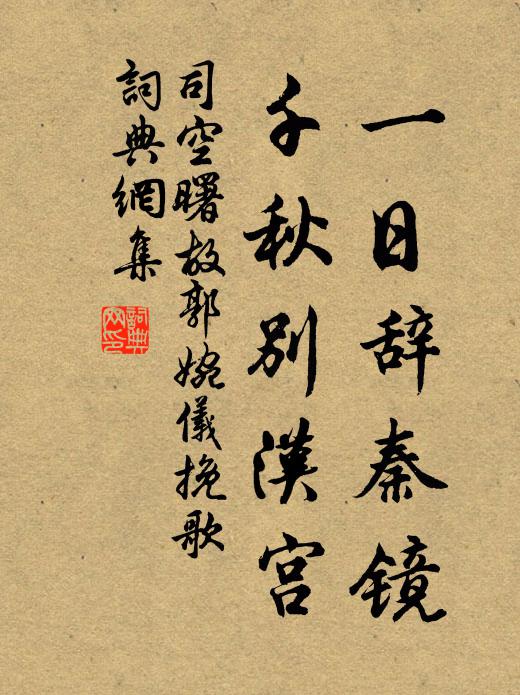 一日辞秦镜
千秋别汉宫
司空曙故郭婉儀挽歌
詞典網集
詞典网印